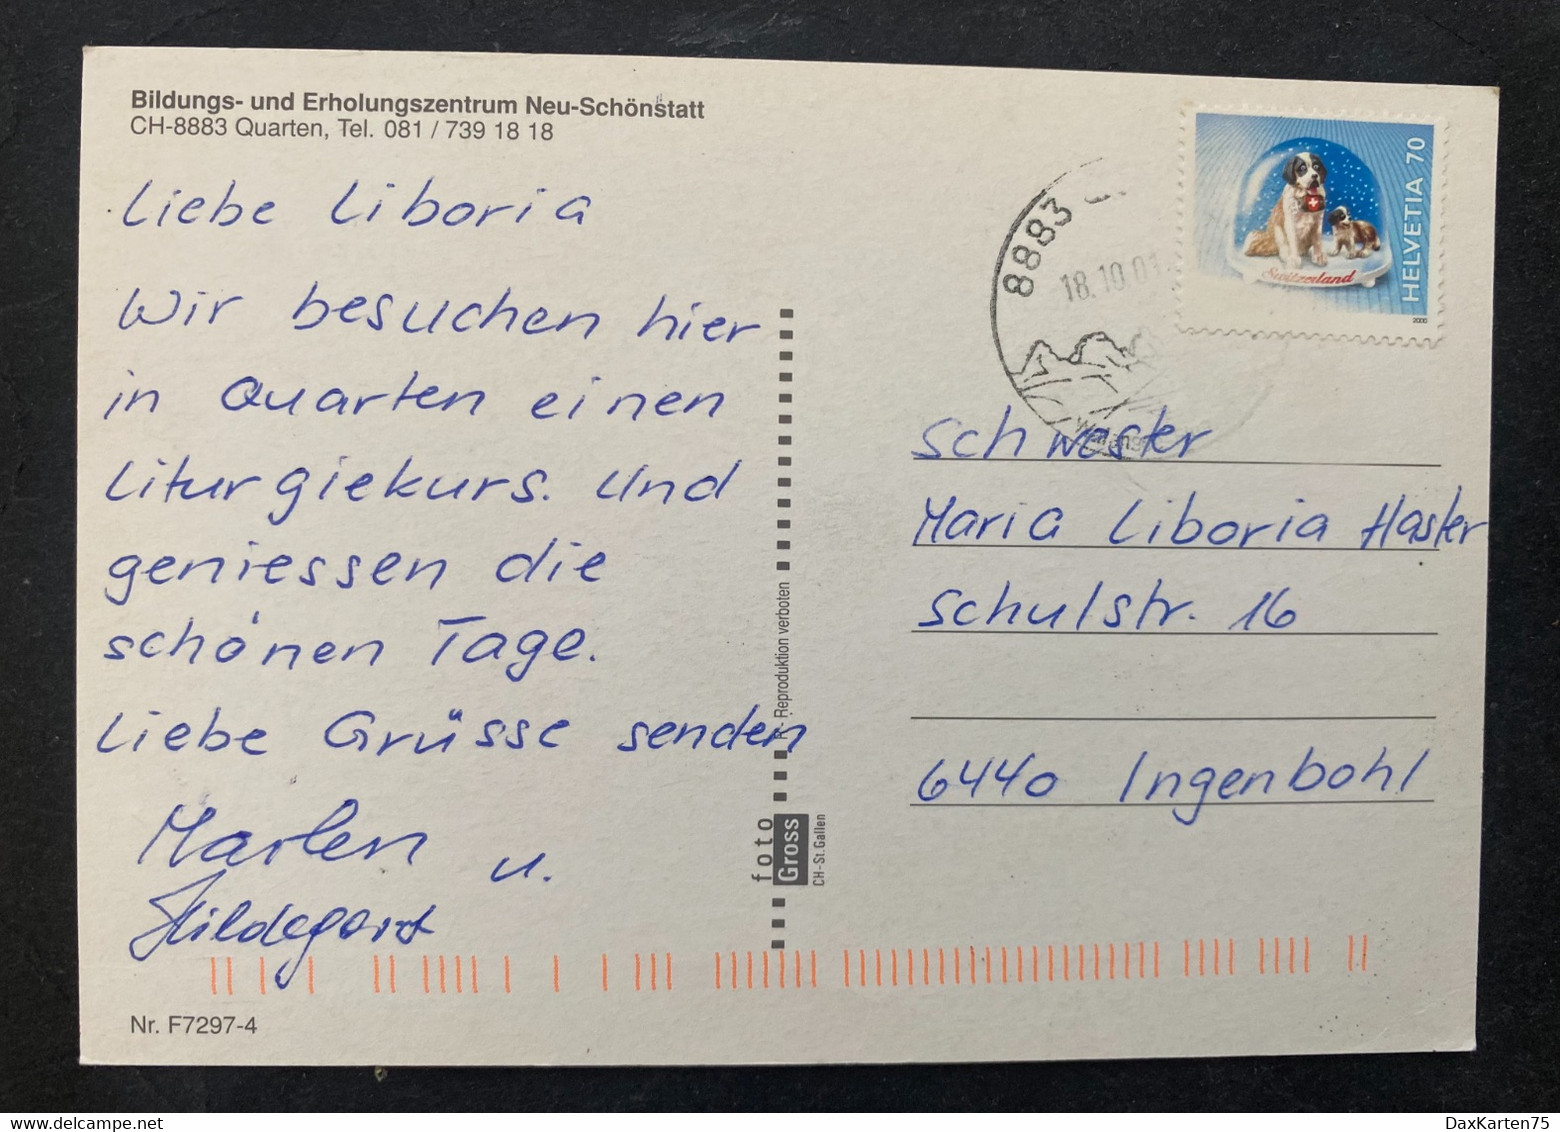 Bildungs- und Erholungszentrum Neu-Schönstatt
CH-8883 Quarten, Tel. 081 / 739 18 18
Liebe Liboria
Wir besuchen hier
in Quarten einen
Liturgiekurs. Und
geniessen die
schönen Tage.
Liebe Grüsse senden
Marlen u.
Hildegard
Nr. F7297-4
Reproduktion verboten
foto
Gross
CH-St. Gallen
8883
18.10.01
HELVETIA 70
Switzerland
2000
Schwester
Maria Liboria Hasler
Schulstr. 16
6440 Ingenbohl
DaxKarten75